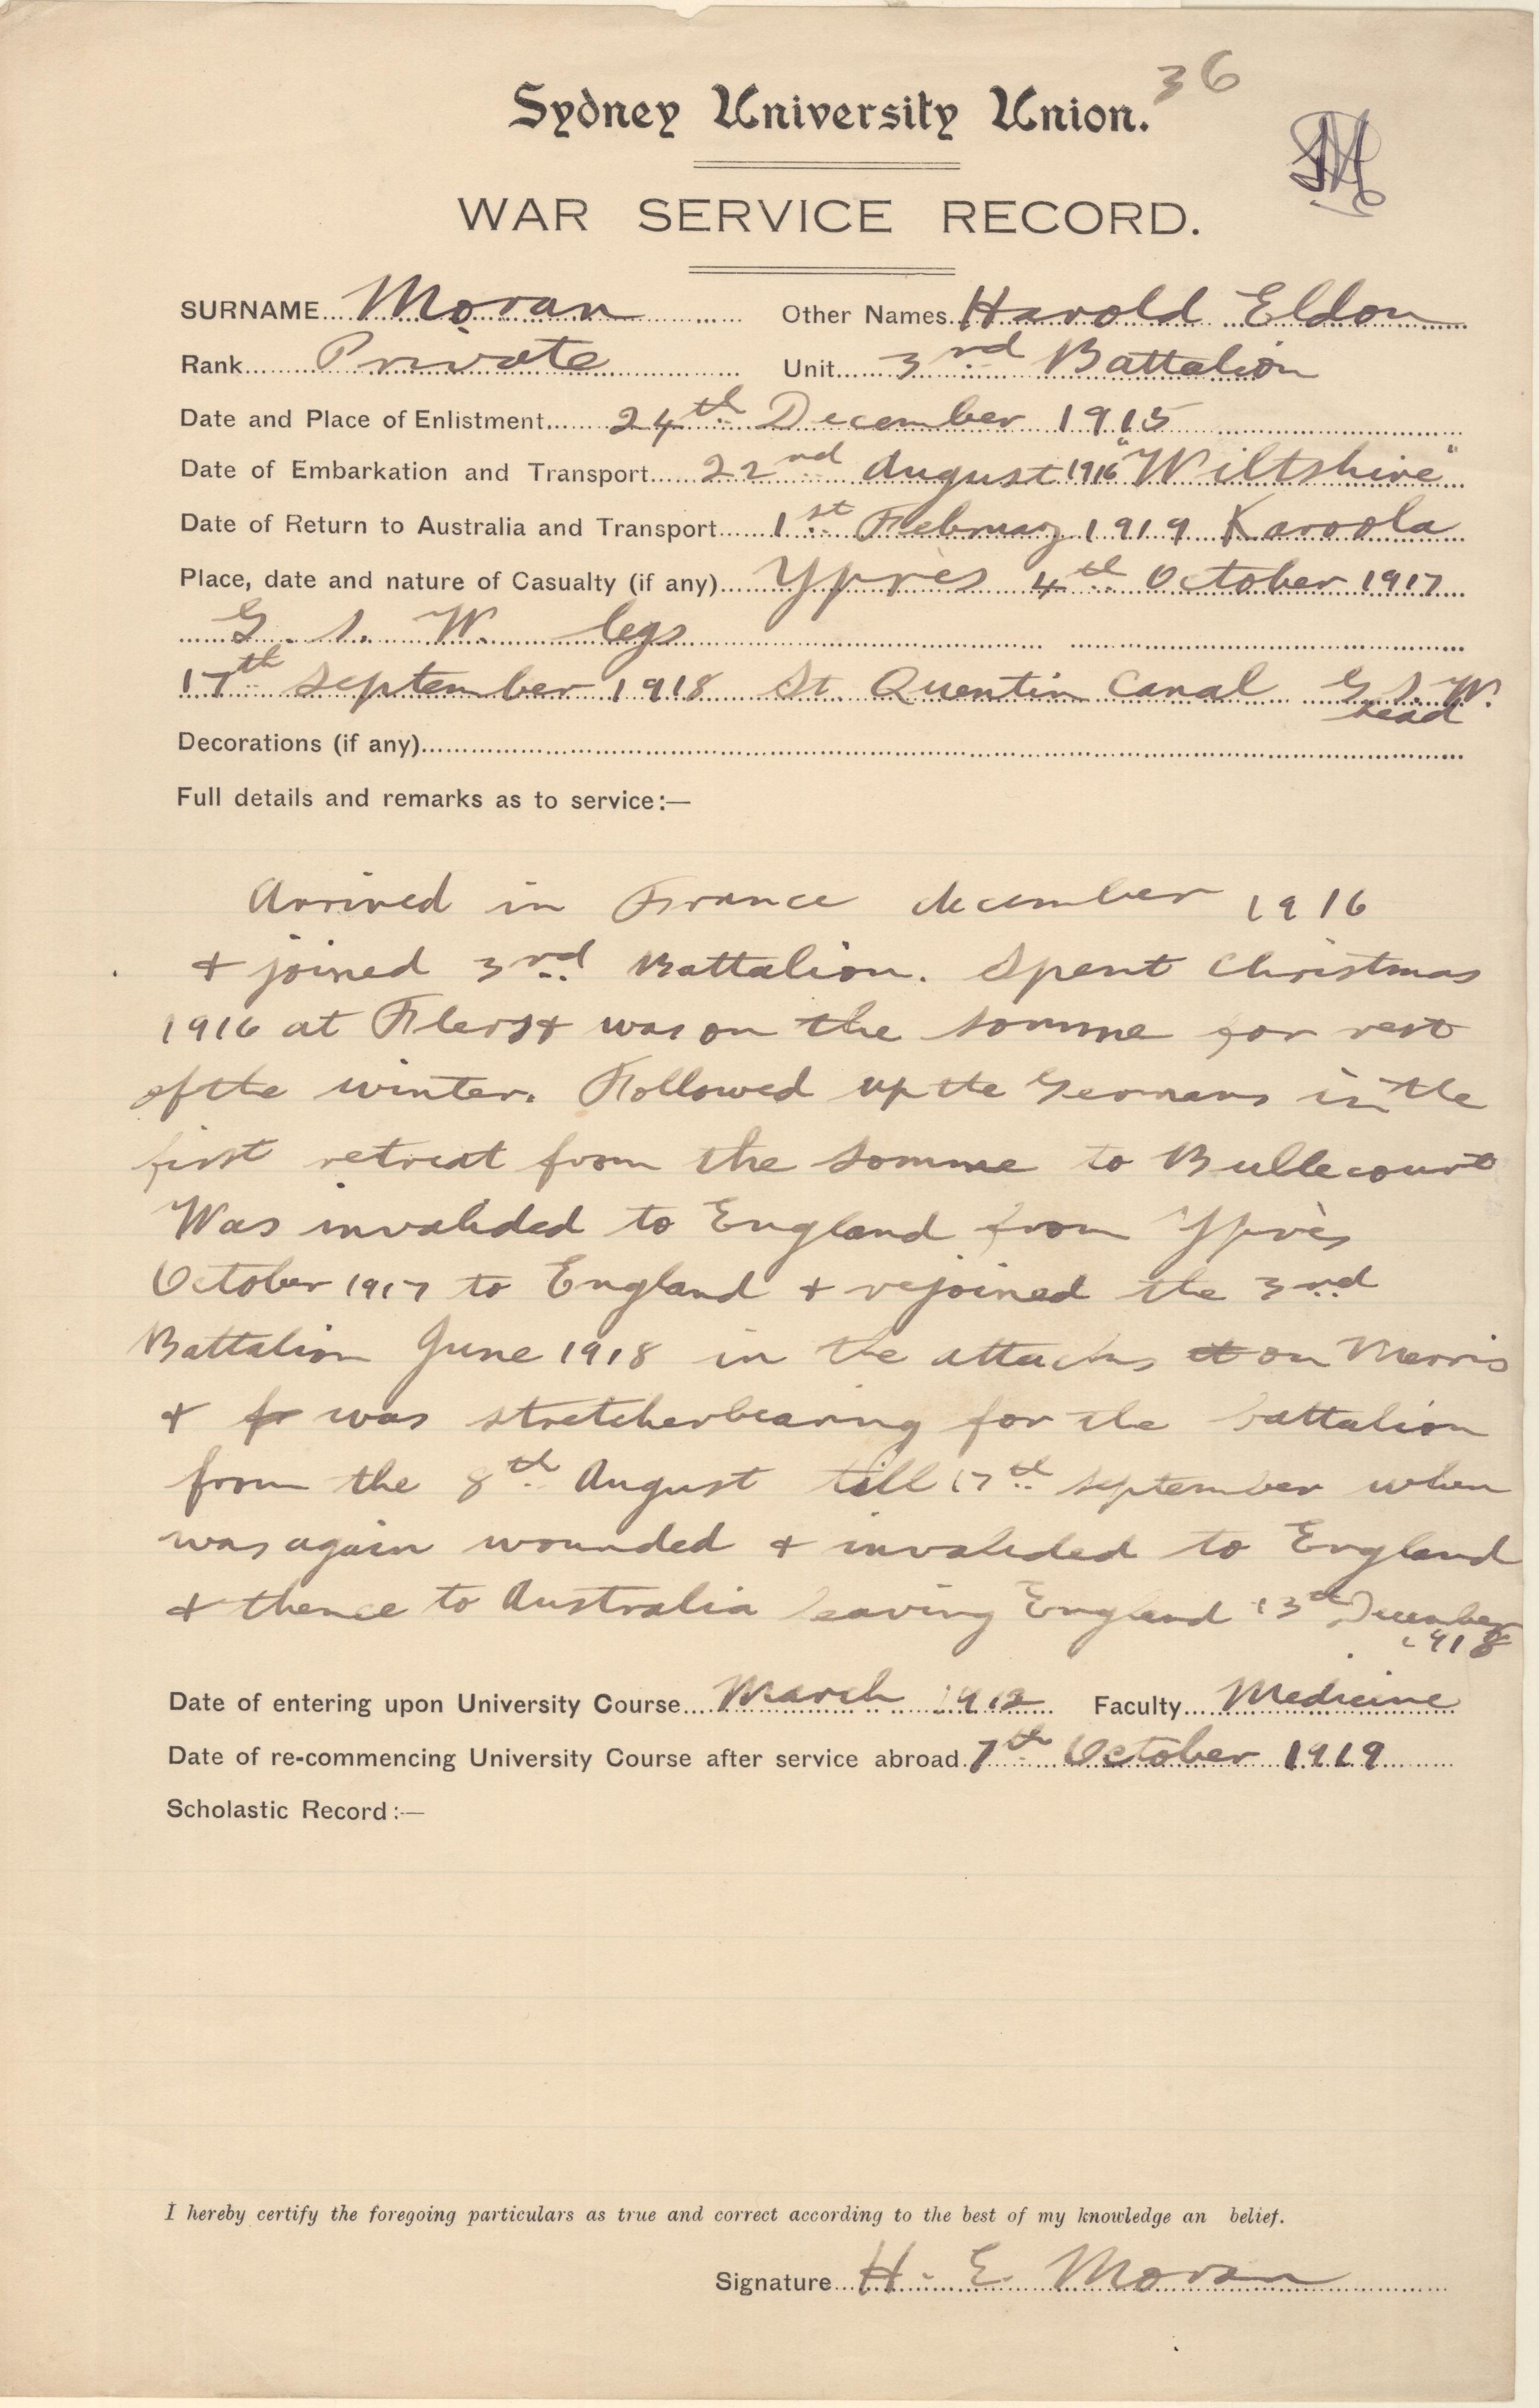 36
Sydney University Union.
WAR SERVICE RECORD.
SURNAME Moran Other Names Harold Eldon
Rank Private Unit 3rd Battalion
Date and Place of Enlistment 24th December 1915
Date of Embarkation and Transport 22nd August 1916 "Wiltshire"
Date of Return to Australia and Transport 1st February 1919 Karoola
Place, date and nature of Casualty (if any) Yprès 4th October 1917
G. S. W. legs
17th September 1918 St. Quentin Canal G. S. W.
head
Decorations (if any)
Full details and remarks as to service:—
Arrived in France december 1916
+ joined 3rd Battalion. Spent Christmas
1916 at Flers + was on the Somme for rest
of the winter. Followed up the Germans in the
first retreat from the Somme to Bullecourt
Was invalided to England from Yprès
October 1917 to England + rejoined the 3rd
Battalion June 1918 in the attacks at on Merris
+ fr was stretcherbearing for the battalion
from the 8th August till 17th September when
was again wounded + invalided to England
+ thence to Australia leaving England 13th December
1918
Date of entering upon University Course March 1912 Faculty Medicine
Date of re-commencing University Course after service abroad 7th October 1919
Scholastic Record:—
I hereby certify the foregoing particulars as true and correct according to the best of my knowledge an belief.
Signature H. E. Moran